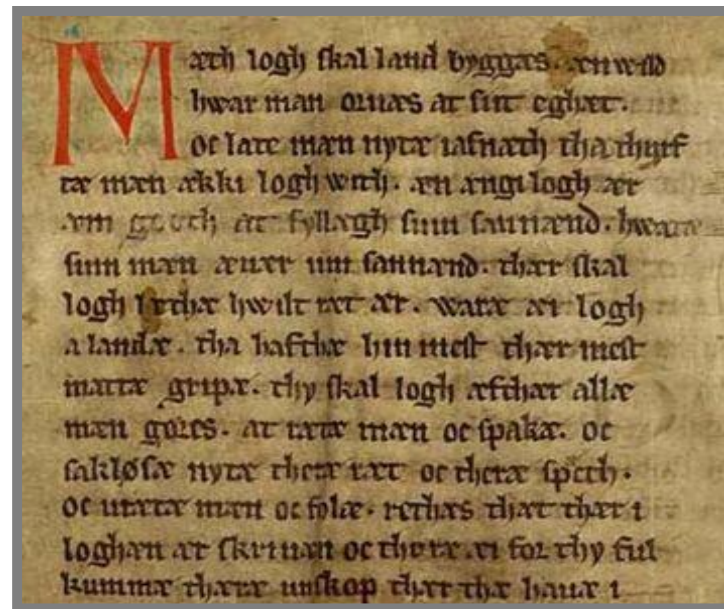 Mæth logh skal land byggæs. æn wild
hwar man ornæs at sitt eghæt.
oc late mæn nytæ iafnæth tha thyrf
tæ mæn ækki logh with. æn ængi logh ær
æm gooth at fyllægh sum sannænd. hwaræ
sum mæn æuær um sannænd. thær skal
logh lethæ hwilt ræt ær. waræ æi logh
a landæ. tha hafthæ hin mest thær mest
mattæ gripæ. thy skal logh æfthær allæ
mæn gøres. at rætæ mæn oc spakæ. oc
sakløsæ nytæ theræ ræt oc theræ spæth.
oc urætæ mæn oc folæ. rethæs thæt thær i
loghæn ær skriuæn oc thoræ æi for thy ful
kummæ theræ unskop thær the hauæ i